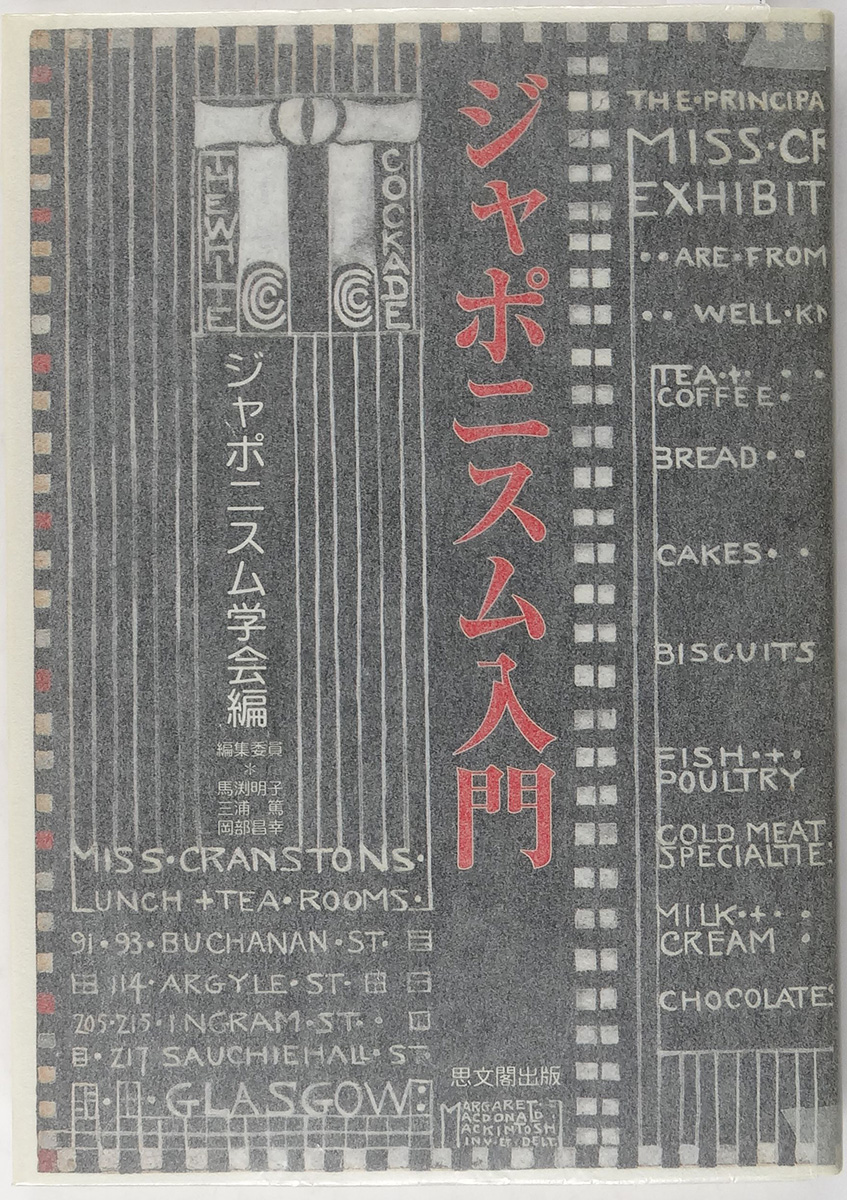 ジャポニスム入門
THE WHITE
COCKADE
ジャポニスム学会編
編集委員
＊
馬渕明子
三浦 篤
岡部昌幸
MISS·CRANSTONS·
LUNCH +TEA·ROOMS.
91·93·BUCHANAN·ST.
114·ARGYLE·ST·
205·215·INGRAM·ST·
217 SAUCHIEHALL·ST
GLASGOW
思文閣出版
MARGARET
MACDONALD
MACKINTOSH
INV·ET·DELT.
THE·PRINCIPA
MISS·CR
EXHIBIT
··ARE·FROM
·· WELL·KN
TEA·+·
COFFEE·
BREAD··
CAKES··
BISCUITS
FISH·+·
POULTRY
COLD MEAT
SPECIALTIE
MILK·+·
CREAM
CHOCOLATES